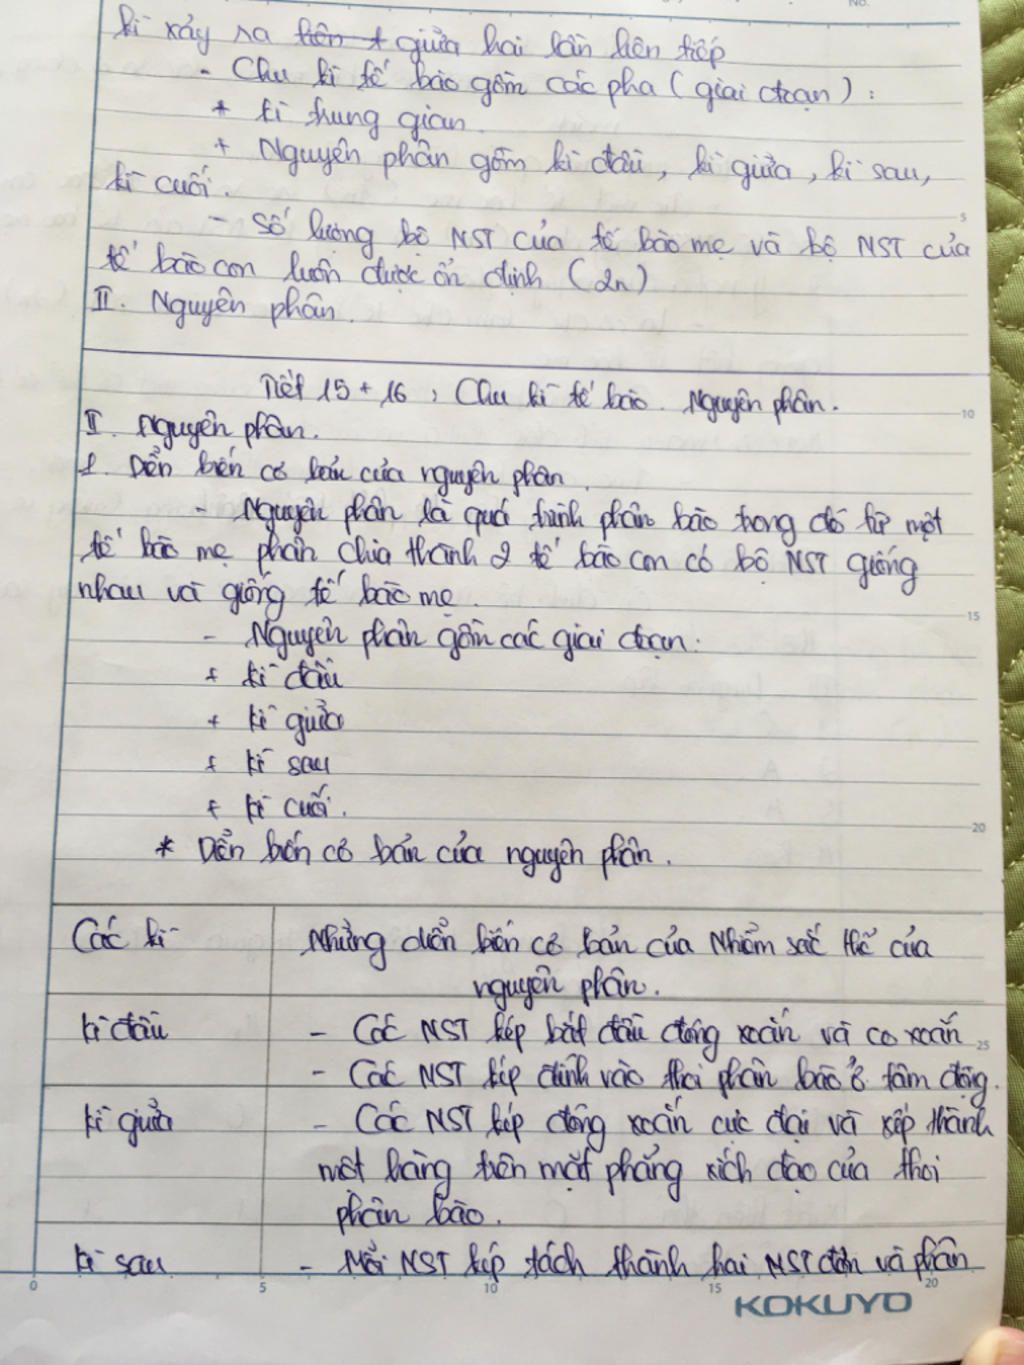 kì xảy ra giữa hai lần liên tiếp
- Chu kì tế bào gồm các pha (giai đoạn):
+ kì trung gian.
+ Nguyên phân gồm kì đầu, kì giữa, kì sau,
kì cuối.
- Số lượng bộ NST của tế bào mẹ và bộ NST của
tế bào con luôn được ổn định (2n)
II. Nguyên phân.
Tiết 15 + 16, Chu kì tế bào. Nguyên phân.
II. Nguyên phân.
1. Diển biến cơ bản của nguyên phân.
- Nguyên phân là quá trình phân bào trong đó từ một
tế bào mẹ phân chia thành 2 tế bào con có bộ NST giống
nhau và giống tế bào mẹ.
- Nguyên phân gồm các giai đoạn:
+ kì đầu
+ kì giữa
+ kì sau
+ kì cuối.
* Diển biến cơ bản của nguyên phân.
Các kì
Những diển biến cơ bản của Nhiểm sắc thể của
nguyên phân.
kì đầu - Các NST kép bắt đầu đóng xoắn và co xoắn
- Các NST kép đính vào thoi phân bào ở tâm động.
kì giữa - Các NST kép đóng xoắn cực đại và xếp thành
một hàng trên mặt phẳng xích đạo của thoi
phân bào.
kì sau - Mỗi NST kép tách thành hai NST đơn và phân
0 5 10 15 20
KOKUYO
No.
5
10
15
20
25